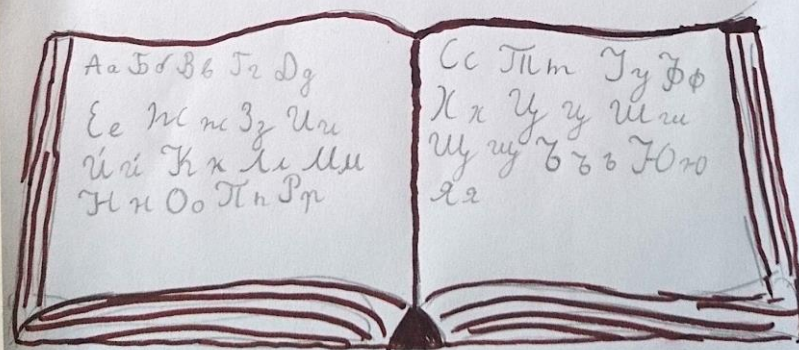 Аа Бб Вв Гг Дд
Ее Жж Зз Ии
Йй Кк Лл Мм
Нн Оо Пп Рр
Сс Тт Уу Фф
Хх Цц Шш
Щщ Ъъ ь Юю
Яя